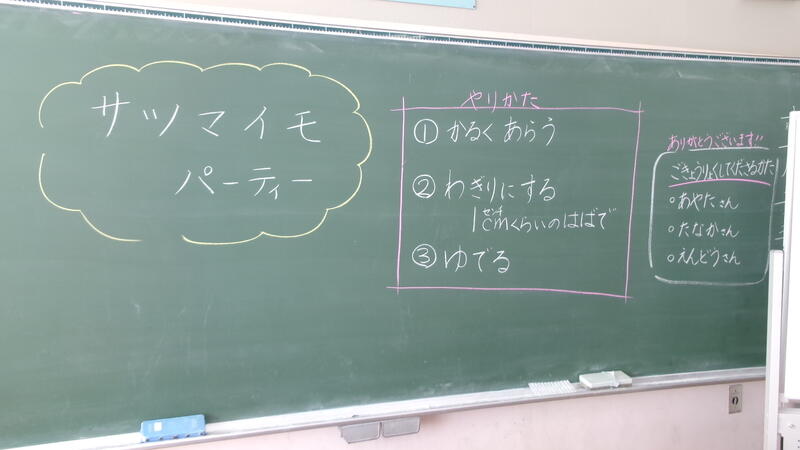 サツマイモ
パーティー
やりかた
① かるく あらう
② わぎりにする
1cmくらいのはばで
③ ゆでる
ありがとうございます!!
ごきょうりょくしてくださるかた
○あやたさん
○たなかさん
○えんどうさん